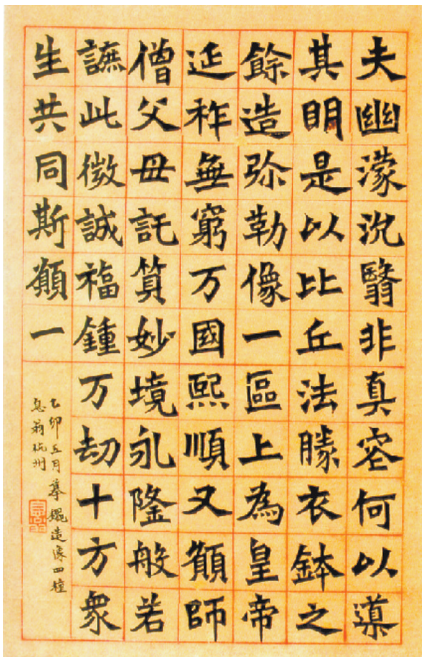 夫幽濛沉翳非真容何以導
其眀是以比丘法勝衣鉢之
餘造弥勒像一區上為皇帝
延祚無窮万國熙順又願師
僧父母託質妙境永隆般若
謶此微誠福鍾万劫十方衆
生共同斯願一
乙卯五月摹魏造像四種
息翁杭州